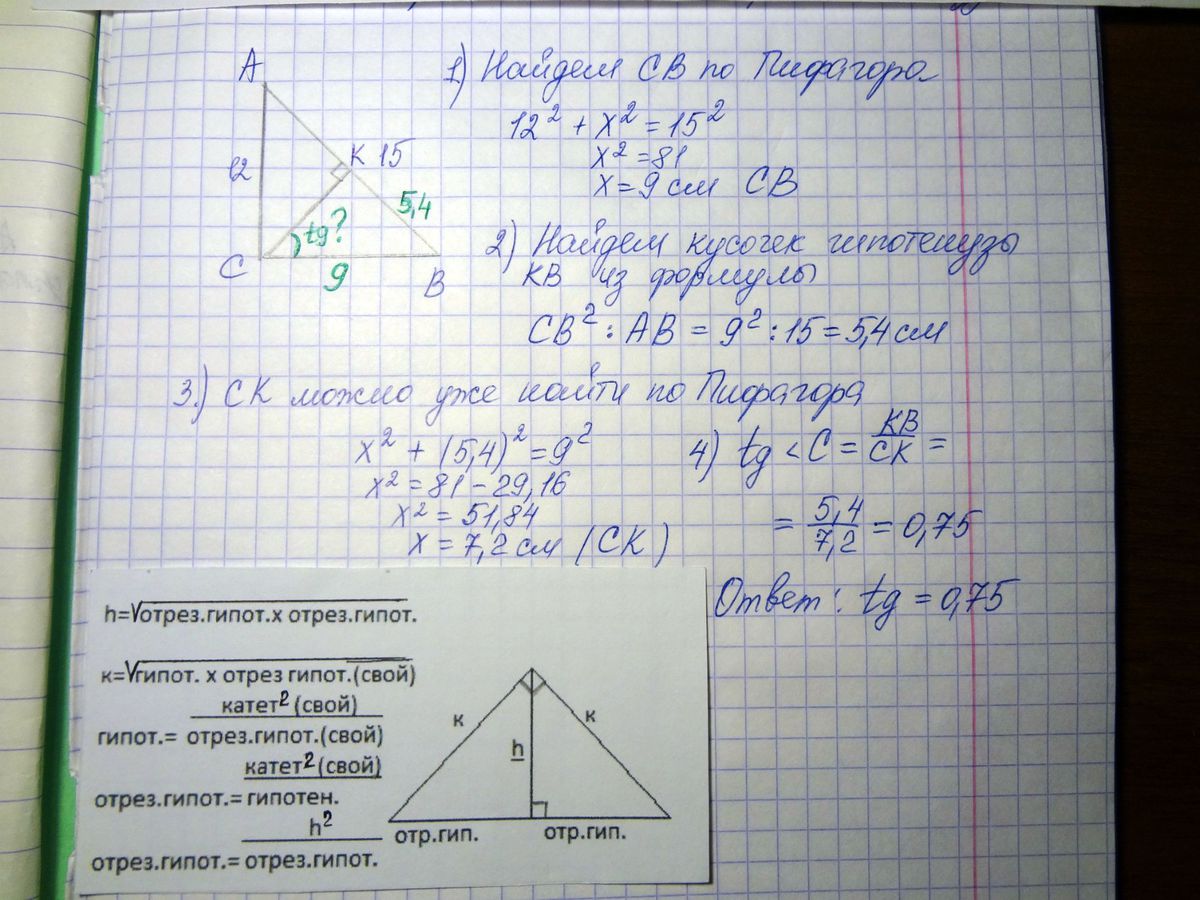 A
12
C
K 15
5,4
tg?
9
B
1) Найдем CB по Пифагора
12² + x² = 15²
x² = 81
x = 9 см CB
2) Найдем кусочек гипотенузы
KB из формулы
CB² : AB = 9² : 15 = 5,4 см
3.) CK можно уже найти по Пифагора
x² + (5,4)² = 9²
x² = 81 - 29,16
x² = 51,84
x = 7,2 см (CK)
4) tg < C = KB/CK =
= 5,4/7,2 = 0,75
Ответ: tg = 0,75
h=√отрез.гипот.х отрез.гипот.
к=√гипот. х отрез гипот.(свой)
катет² (свой)
гипот.= отрез.гипот.(свой)
катет² (свой)
отрез.гипот.= гипотен.
h²
отрез.гипот.= отрез.гипот.
к
к
h
отр.гип.
отр.гип.